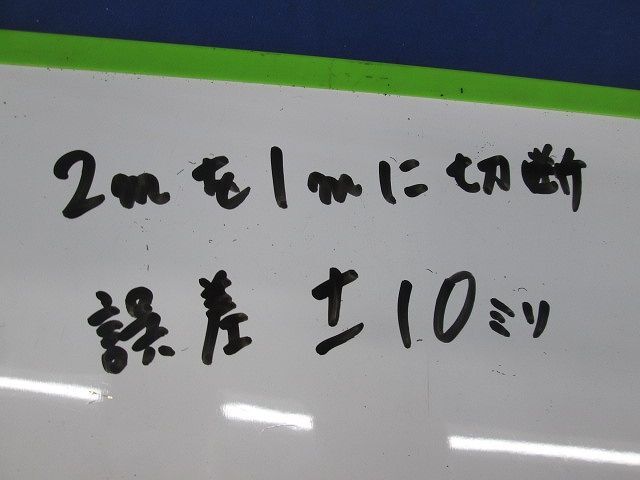 2mを1mに切断
誤差 ±10ミリ